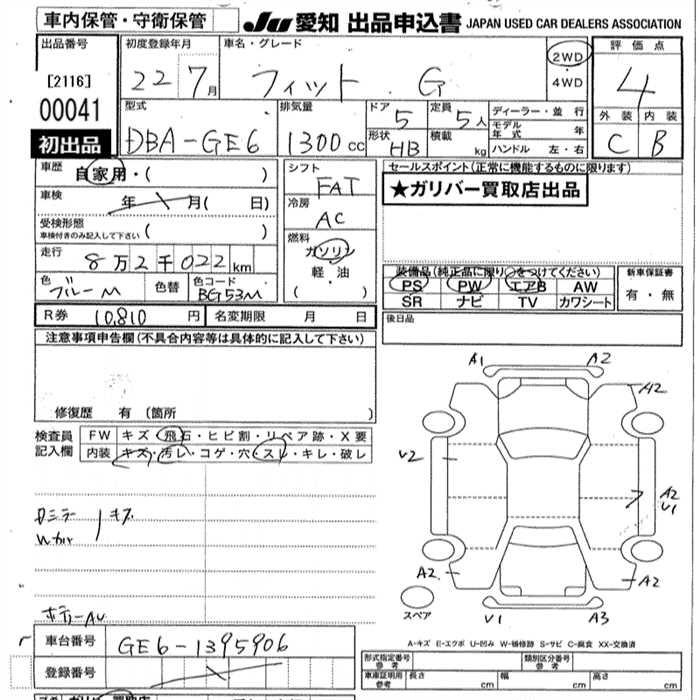 車内保管・守衛保管
JU 愛知 出品申込書 JAPAN USED CAR DEALERS ASSOCIATION
出品番号
[2116]
00041
初出品
初度登録年月
22 7月
車名・グレード
フィット G
2WD
・
4WD
評価点
4
外装 内装
C B
型式
DBA-GE6
排気量
1300 cc
ドア 5
形状 HB
定員 5人
積載 kg
ディーラー・並行
モデル年式 年
ハンドル 左・右
車歴 自家用・( )
車検 年 月( 日)
受検形態
車検付きのみ記入して下さい ( )
走行 8万2千022km
色 ブルーM 色替 色コード BG53M
シフト
FAT
冷房
AC
燃料
ガソリン
軽・油
( )
セールスポイント(正常に機能するものに限ります)
★ガリバー買取店出品
装備品(純正品に限り○をつけてください)
PS PW エアB AW
SR ナビ TV カワシート
新車保証書
有・無
R券 10,810円 名変期限 月 日
後日品
注意事項申告欄(不具合内容等は具体的に記入して下さい)
修復歴 有 (箇所 )
検査員
記入欄
FW キズ・飛石・ヒビ割・リペア跡・X要
内装 キズ・汚レ・コゲ・穴・スレ・キレ・破レ
キズ
A1 A2
A2
V2
A2
V1
A2 A2
スペア
V1 A3
A-キズ E-エクボ U-凹み W-補修跡 S-サビ C-腐食 XX-交換済
車台番号 GE6-1395906
登録番号
形式指定番号
参考
類別区分番号
参考
車庫証明用
参考
長さ cm 幅 cm 高さ cm